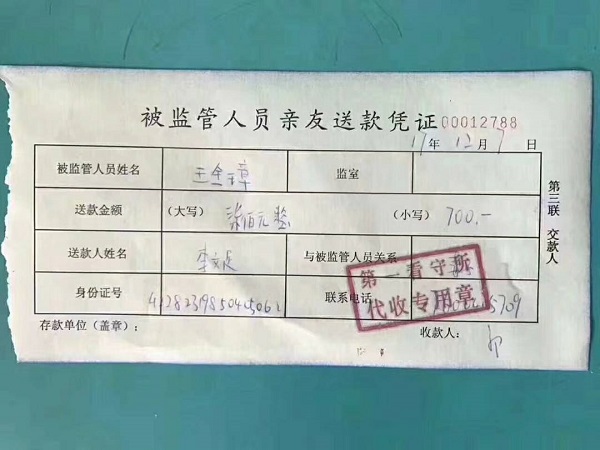 被监管人员亲友送款凭证 00012788
17年12月7日
被监管人员姓名 王全璋 监室
送款金额 (大写) 柒佰元整 (小写) 700.—
送款人姓名 李文足 与被监管人员关系
身份证号 联系电话
第一看守所
代收专用章
存款单位（盖章）： 收款人：
第三联 交款人